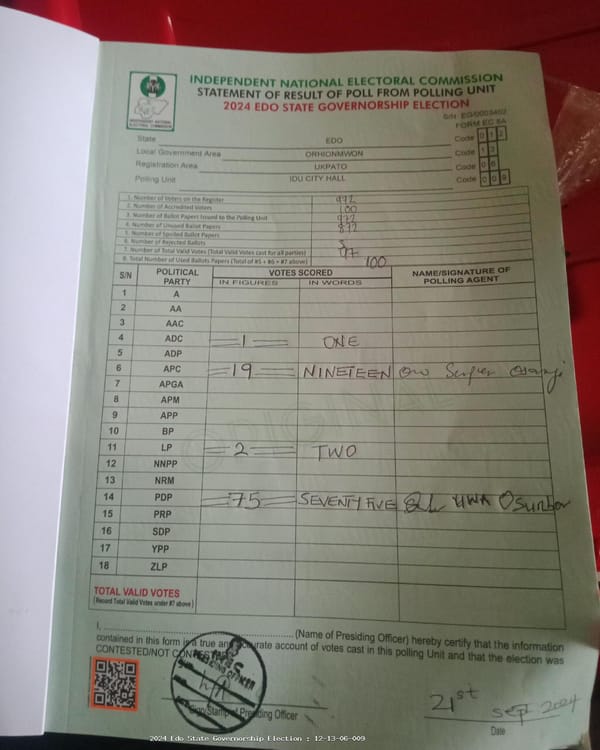 INDEPENDENT NATIONAL ELECTORAL COMMISSION
STATEMENT OF RESULT OF POLL FROM POLLING UNIT
2024 EDO STATE GOVERNORSHIP ELECTION
INDEPENDENT NATIONAL ELECTORAL COMMISSION
S/N: EG/0003402
FORM EC 8A
State EDO Code 0 1 2
Local Government Area ORHIONMWON Code 1 3
Registration Area UKPATO Code 0 6
Polling Unit IDU CITY HALL Code 0 0 9
1. Number of Voters on the Register 972
2. Number of Accredited Voters 100
3. Number of Ballot Papers Issued to the Polling Unit 972
4. Number of Unused Ballot Papers 872
5. Number of Spoiled Ballot Papers
6. Number of Rejected Ballots 3
7. Number of Total Valid Votes (Total Valid Votes cast for all parties) 97
8. Total Number of Used Ballots Papers (Total of #5 + #6 + #7 above) 100
S/N POLITICAL PARTY VOTES SCORED NAME/SIGNATURE OF POLLING AGENT
IN FIGURES IN WORDS
1 A
2 AA
3 AAC
4 ADC 1 ONE
5 ADP
6 APC 19 NINETEEN
7 APGA
8 APM
9 APP
10 BP
11 LP 2 TWO
12 NNPP
13 NRM
14 PDP 75 SEVENTY FIVE
15 PRP
16 SDP
17 YPP
18 ZLP
ORIGINAL
TOTAL VALID VOTES
(Record Total Valid Votes under #7 above)
I, ........................ (Name of Presiding Officer) hereby certify that the information
contained in this form is a true and accurate account of votes cast in this polling Unit and that the election was
CONTESTED/NOT CONTESTED
Presiding Officer
21st Sept 2024
Date
2024 Edo State Governorship Election : 12-13-06-009